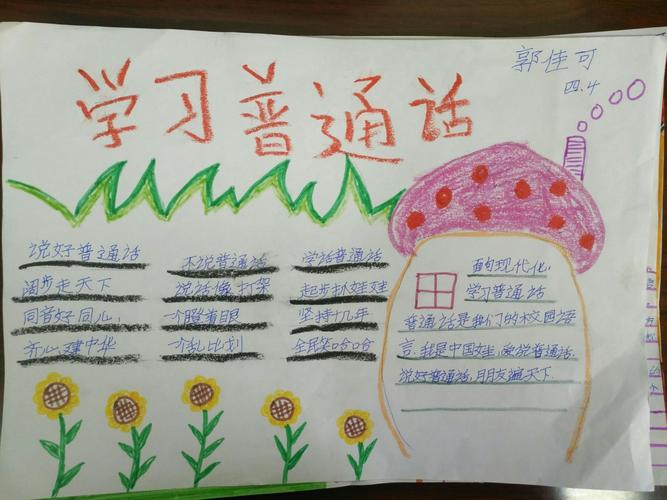 学习普通话
郭佳可
四.4
说好普通话
阔步走天下
同音好同心，
齐心建中华
不说普通话
说话像打架
一个瞪着眼
一个乱比划
学话普通话
起步扒娃娃
坚持十几年
全民笑哈哈
面向现代化，
学习普通话
普通话是我们的校园语
言，我是中国娃，爱说普通话，
说好普通话，朋友遍天下